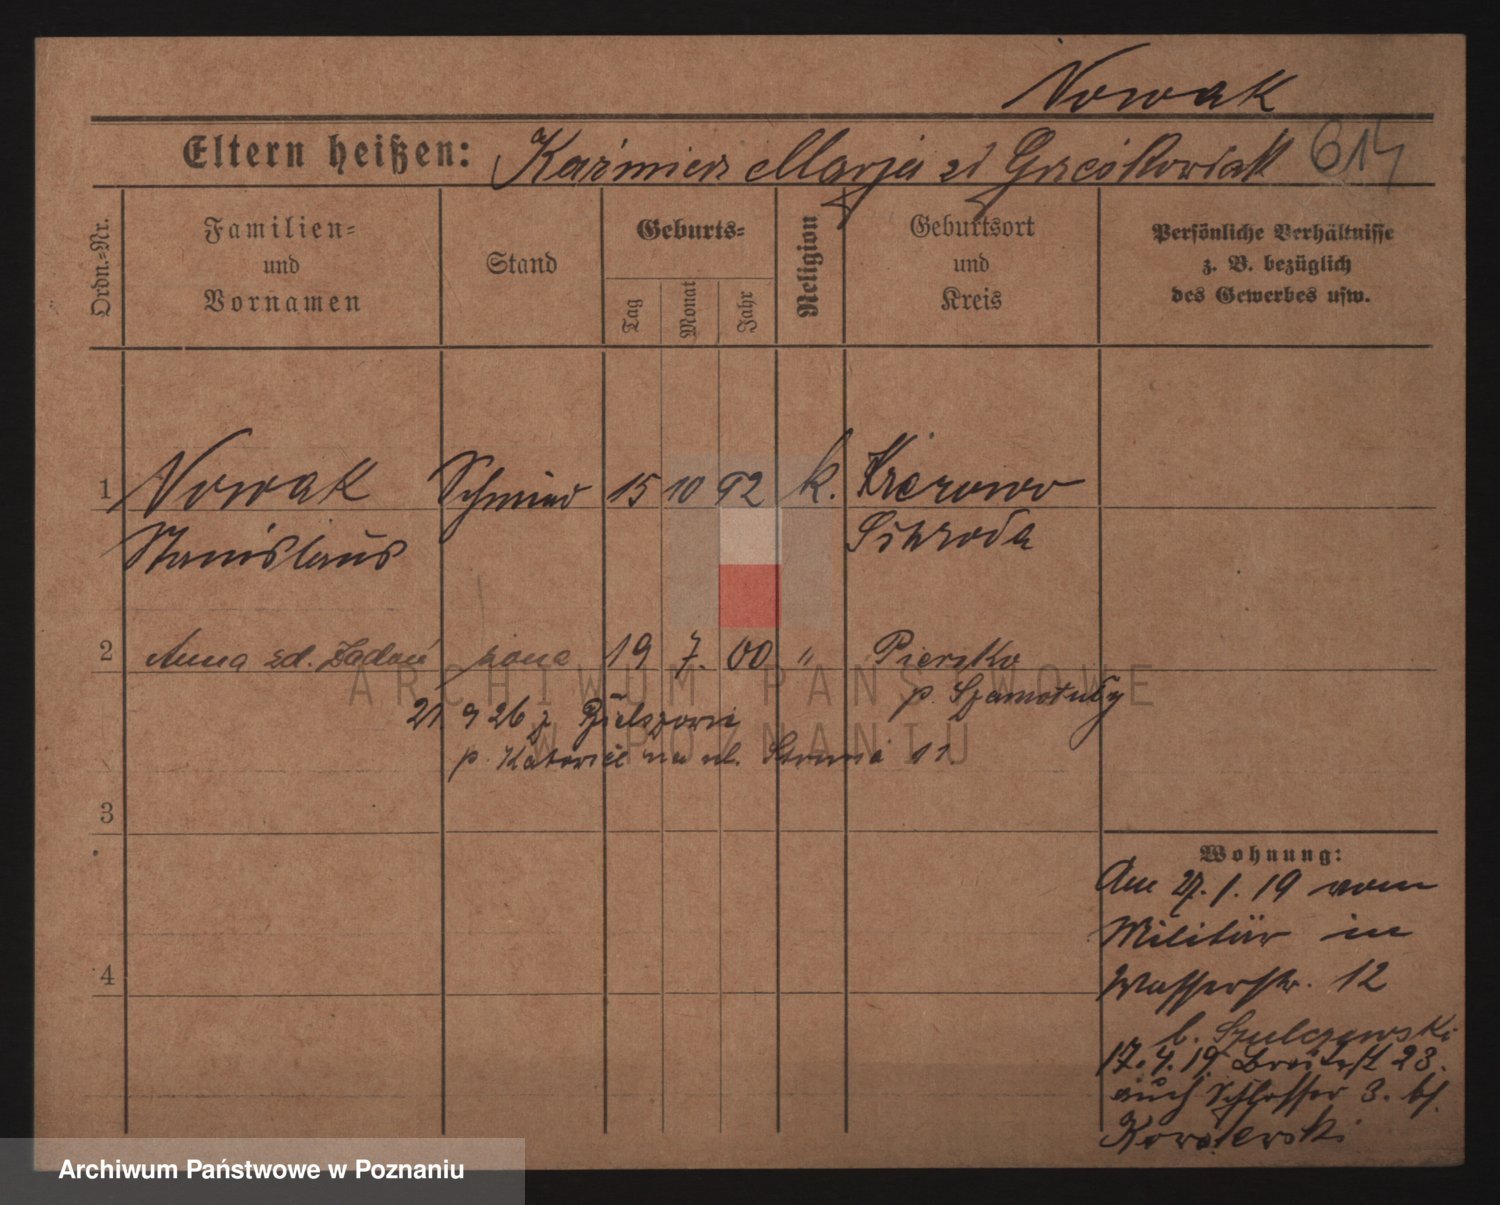 Nowak
Eltern heißen: Kaźmierz Marja zd Grześkowiak 614
Ordn.-Nr.
Familien-
und
Vornamen
Stand
Geburts-
Tag
Monat
Jahr
Religion
Geburtsort
und
Kreis
Persönliche Verhältnisse
z. B. bezüglich
des Gewerbes usw.
1 Nowak Schmied 15 10 92 k. Krerowo
Stanislaus Schroda
2 Anna zd. żona 19 7. 00 " Piersko
p. Szamotuły
21. 9 26 z
p. Katowic na ul. 11.
3
Wohnung:
Am 27. 1. 19 vom
Militär in
4
Wasserstr. 12
b. Szulczewski
17. 4. 19 Breitest 23.
auch Schlosser 3. bf.
Kowalewski
ARCHIWUM PAŃSTWOWE
W POZNANIU
Archiwum Państwowe w Poznaniu